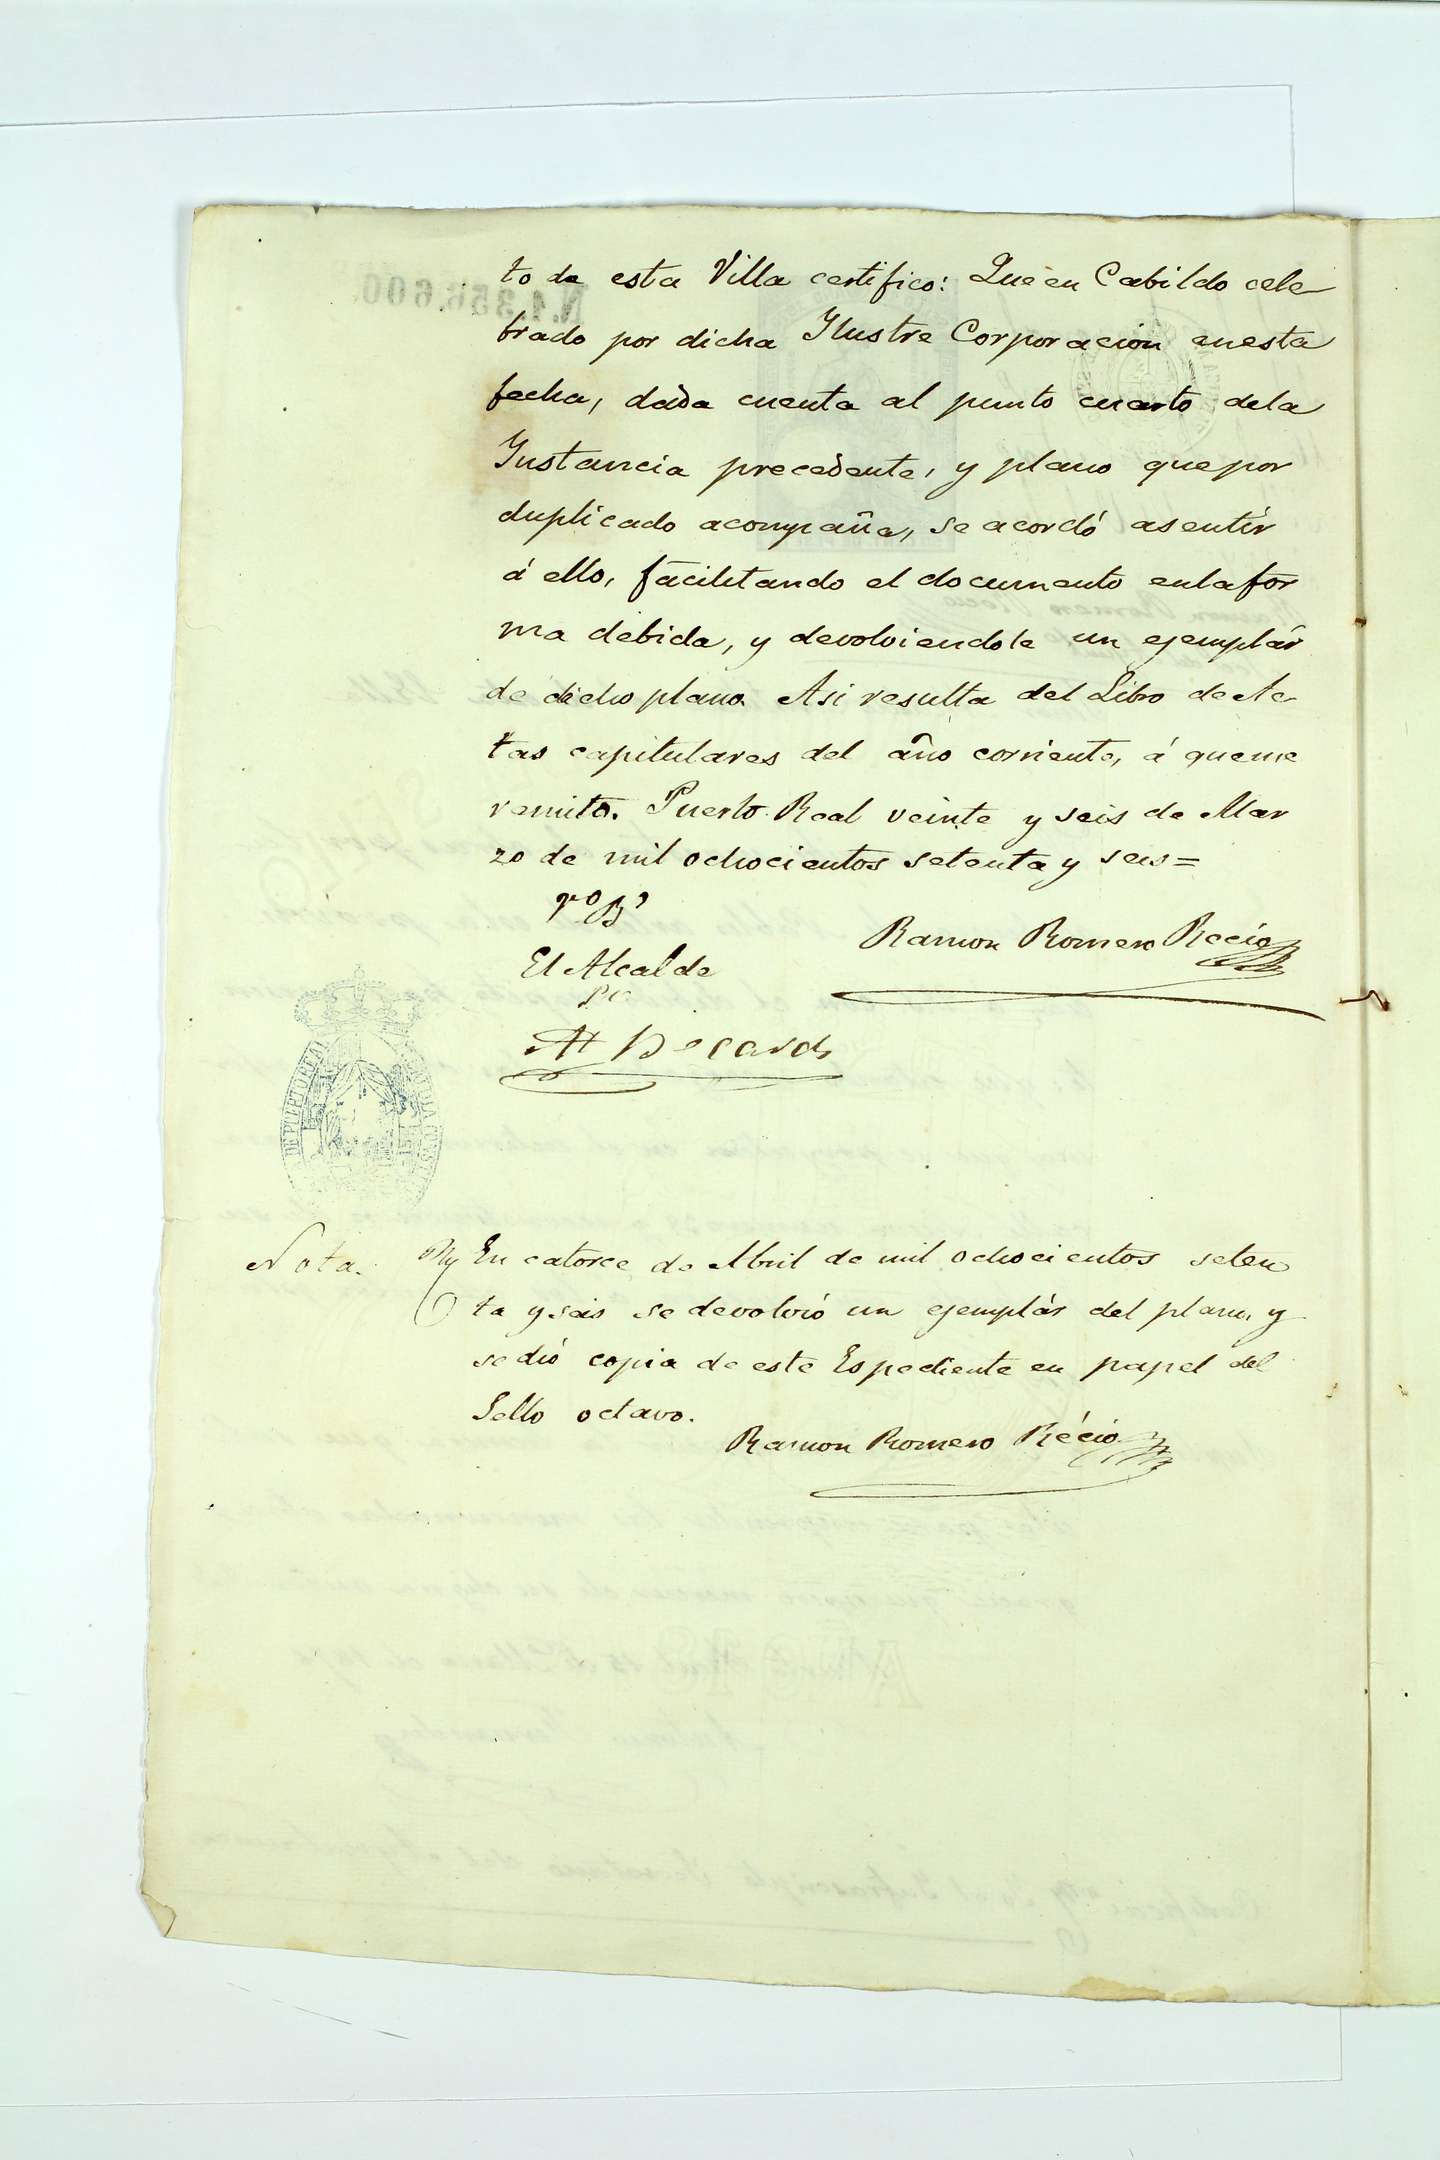 to de esta Villa certifico: Que en Cabildo cele
brado por dicha Ilustre Corporacion en esta
fecha, dada cuenta al punto cuarto de la
Instancia precedente, y plano que por
duplicado acompaña, se acordó asentír
á ello, facilitando el documento en la for
ma debida, y devolviendole un ejemplár
de dicho plano. Asi resulta del Libro de Ac
tas capitulares del año corriente, á que me
remito. Puerto Real veinte y seis de Mar
zo de mil ochocientos setenta y seis=
Vº Bº
Ramon Romero Recio
El Alcalde
Nota.
En catorce de Abril de mil ochocientos seten
ta y seis se devolvió un ejemplár del plano, y
se dió copia de este Espediente en papel del
Sello octavo.
Ramon Romero Récio